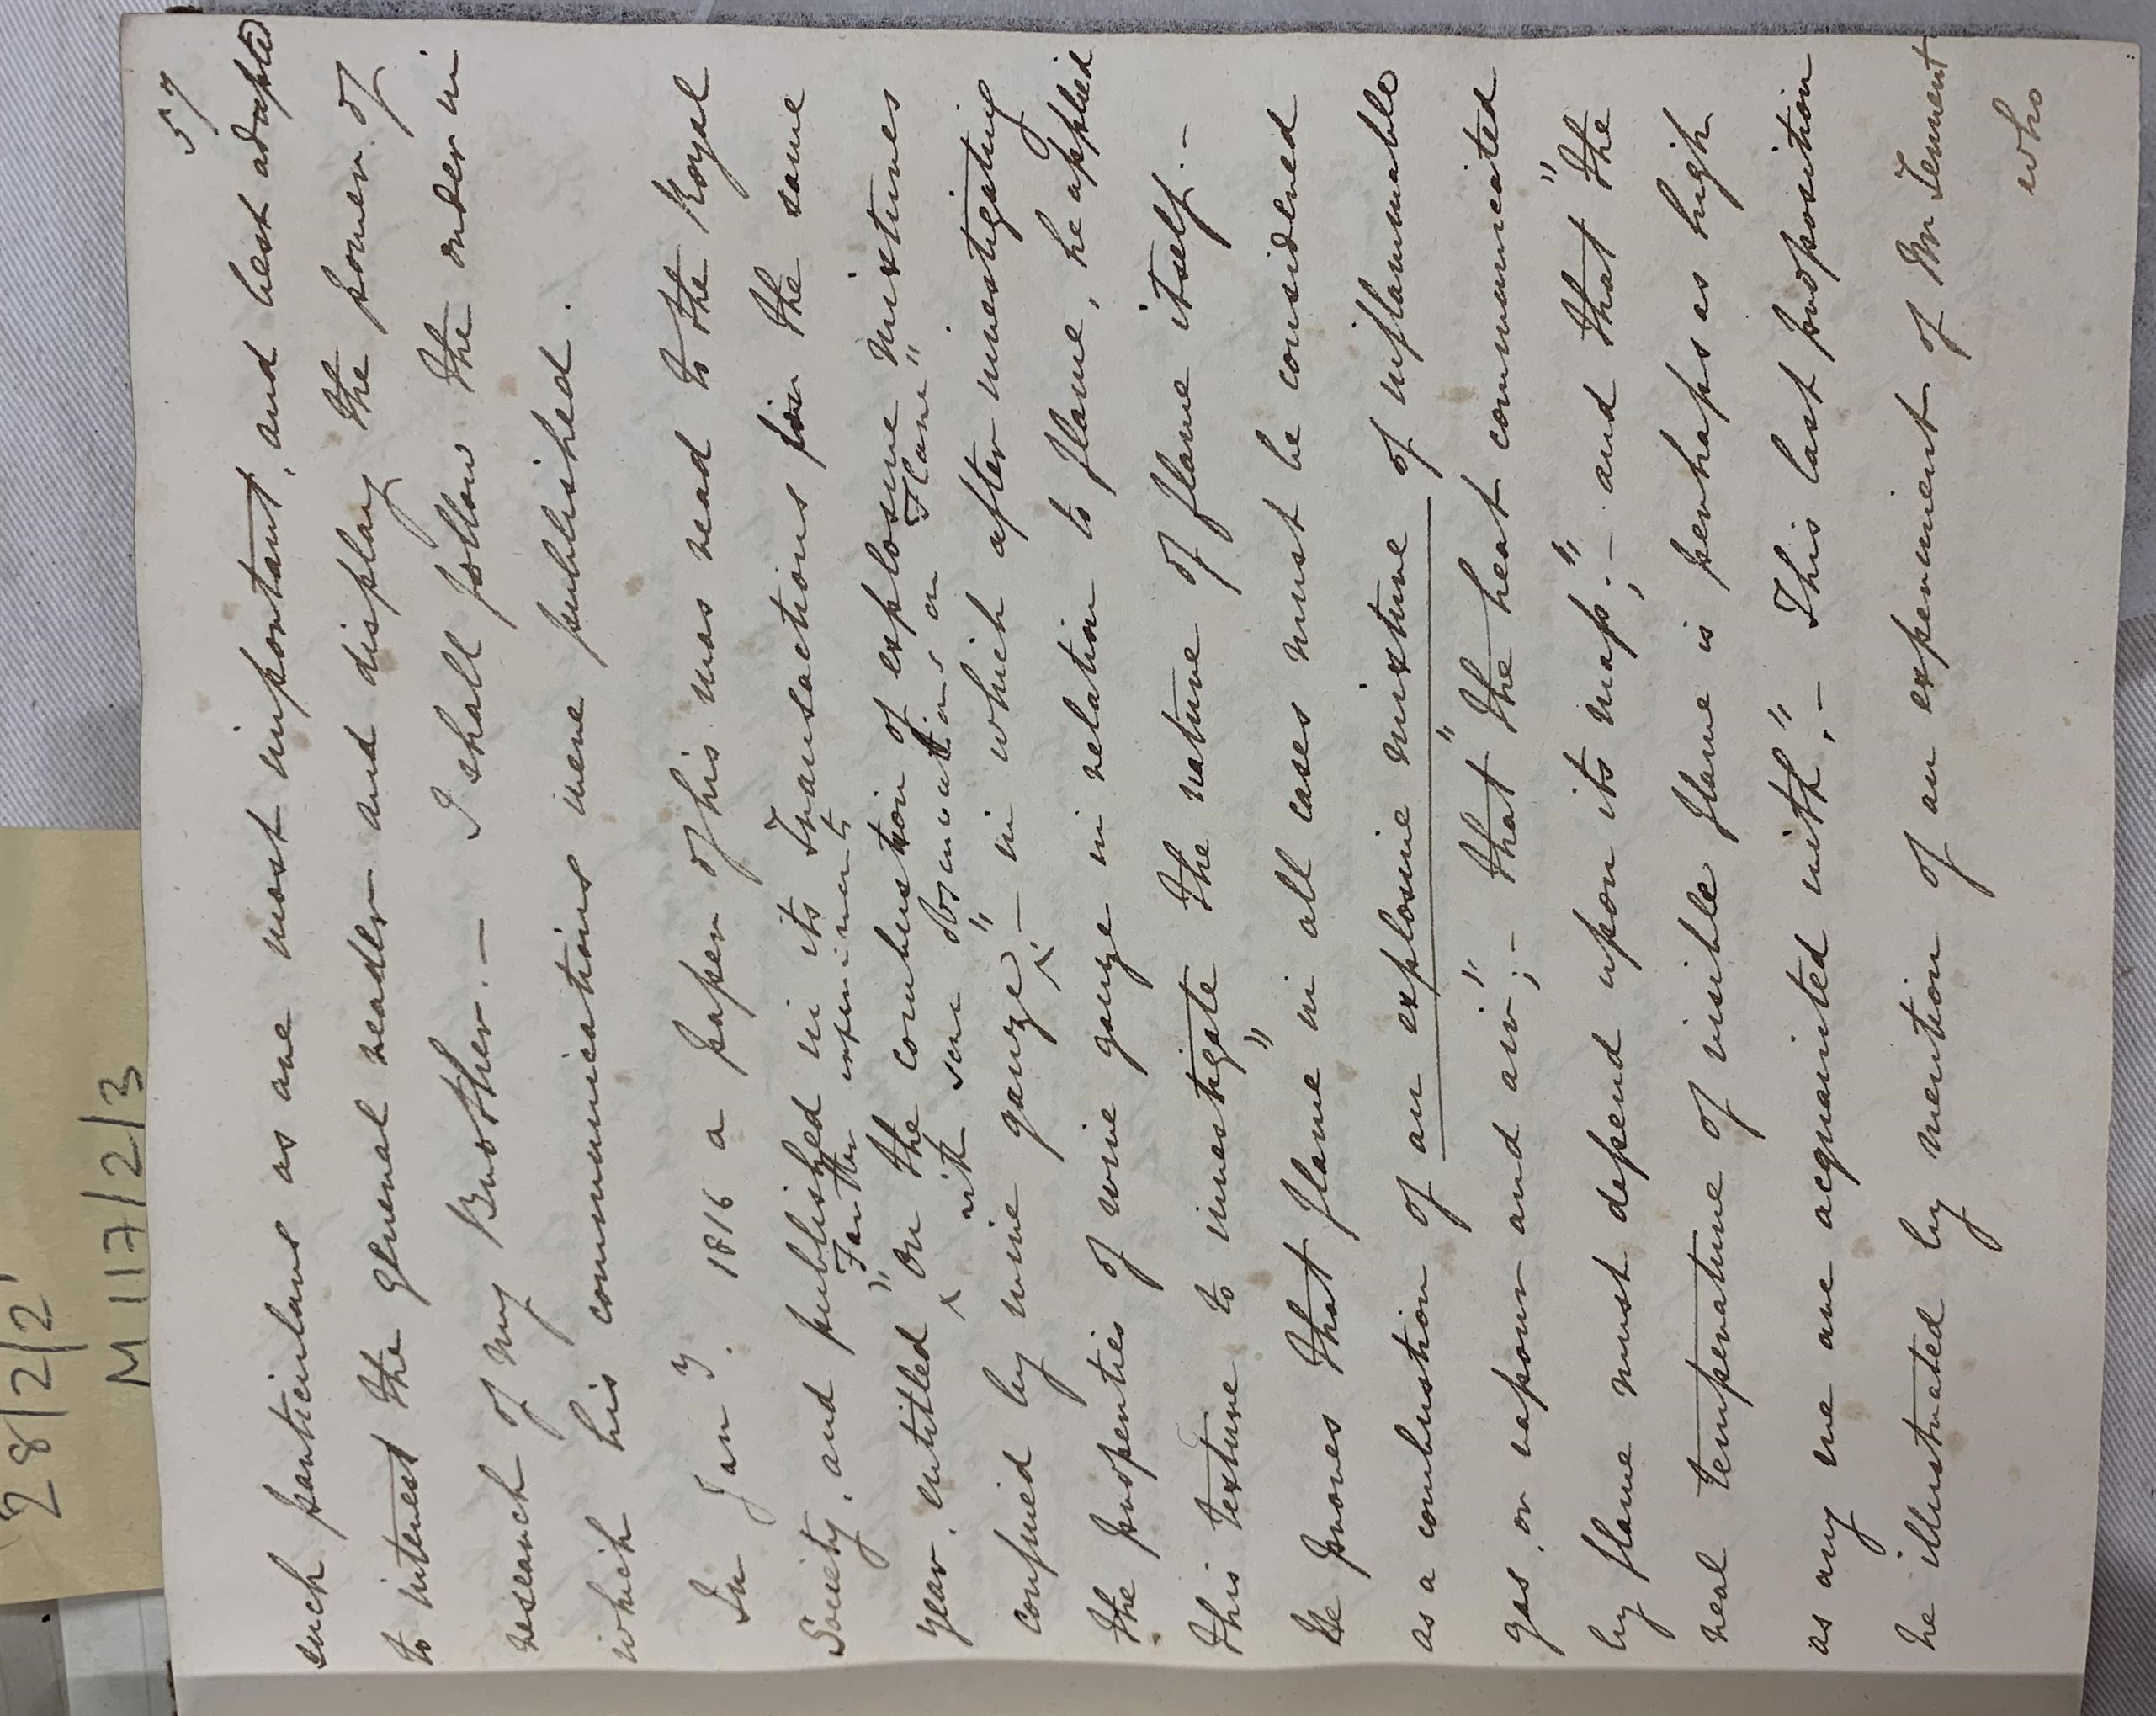 28/2/2
M117/2/3
57
such particulars as are most important, and best adapted
to interest the general reader and display the power of
research of my Brother. — I shall follow the order in
which his communications were published.
In Jany. 1816 a paper of his was read to the Royal
Society, and published in its Transactions for the same
"Farther experiments
year, entitled ^ on the combustion of explosive mixtures
with some observations on Flame"
confined by wire gauze ^" ;— in which after investigating
the properties of wire gauze in relation to flame, he applied
this texture to investigate the nature of flame itself. —
He proves that "flame in all cases must be considered
as a combustion of an explosive mixture of inflammable
gas, or vapour and air" ;— that "the heat communicated
by flame must depend upon its mass" ;— and that "the
real temperature of visible flame is perhaps as high
as any we are acquainted with" ;— This last proposition
he illustrated by mention of an experiment of Mr Tennent
who